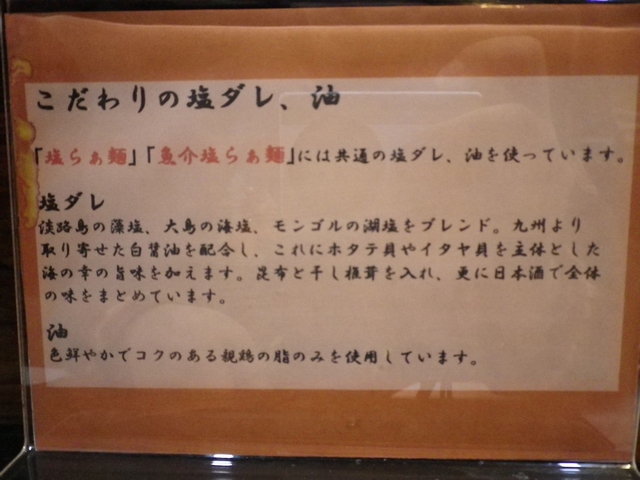 こだわりの塩ダレ、油
「塩らぁ麺」「魚介塩らぁ麺」には共通の塩ダレ、油を使っています。
塩ダレ
淡路島の藻塩、大島の海塩、モンゴルの湖塩をブレンド。九州より
取り寄せた白醤油を配合し、これにホタテ貝やイタヤ貝を主体とした
海の幸の旨味を加えます。昆布と干し椎茸を入れ、更に日本酒で全体
の味をまとめています。
油
色鮮やかでコクのある親鶏の脂のみを使用しています。